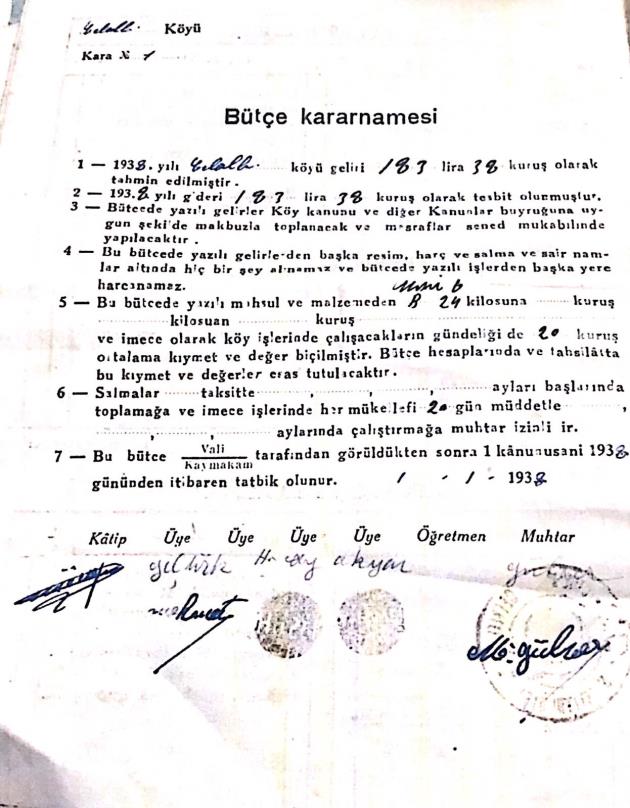 Köyü
Kara № 1
Bütçe kararnamesi
1 — 1938. yılı köyü geliri 183 lira 38 kuruş olarak
tahmin edilmiştir.
2 — 193.8 yılı g'deri 183 lira 38 kuruş olarak tesbit olunmuştur.
3 — Bütcede yazılı gelirler Köy kanunu ve diğer Kanunlar buyruğuna uy-
gun şeki'de makbuzla toplanacak ve masraflar sened mukabilinde
yapılacaktır.
4 — Bu bütcede yazılı gelirlerden başka resim, harç ve salma ve sair nam-
lar altında hiç bir şey alınamaz ve bütcede yazılı işlerden başka yere
harcanamaz.
5 — Bu bütcede yazılı mahsul ve malzemeden 8 24 kilosuna kuruş
kilosuan kuruş
ve imece olarak köy işlerinde çalışacakların gündeliği de 20 kuruş
ortalama kıymet ve değer biçilmiştir. Bütçe hesaplarında ve tahsilâtta
bu kıymet ve değerler esas tutulacaktır.
6 — Salmalar taksitte , , , ayları başlarında
toplamağa ve imece işlerinde her mükellefi 20 gün müddetle ,
, , aylarında çalıştırmağa muhtar izinli ir.
7 — Bu bütce Vali
Kaymakam tarafından görüldükten sonra 1 kânunusani 1938
gününden itibaren tatbik olunur. 1 - 1 - 1938
Kâtip Üye Üye Üye Üye Öğretmen Muhtar
M. gülser